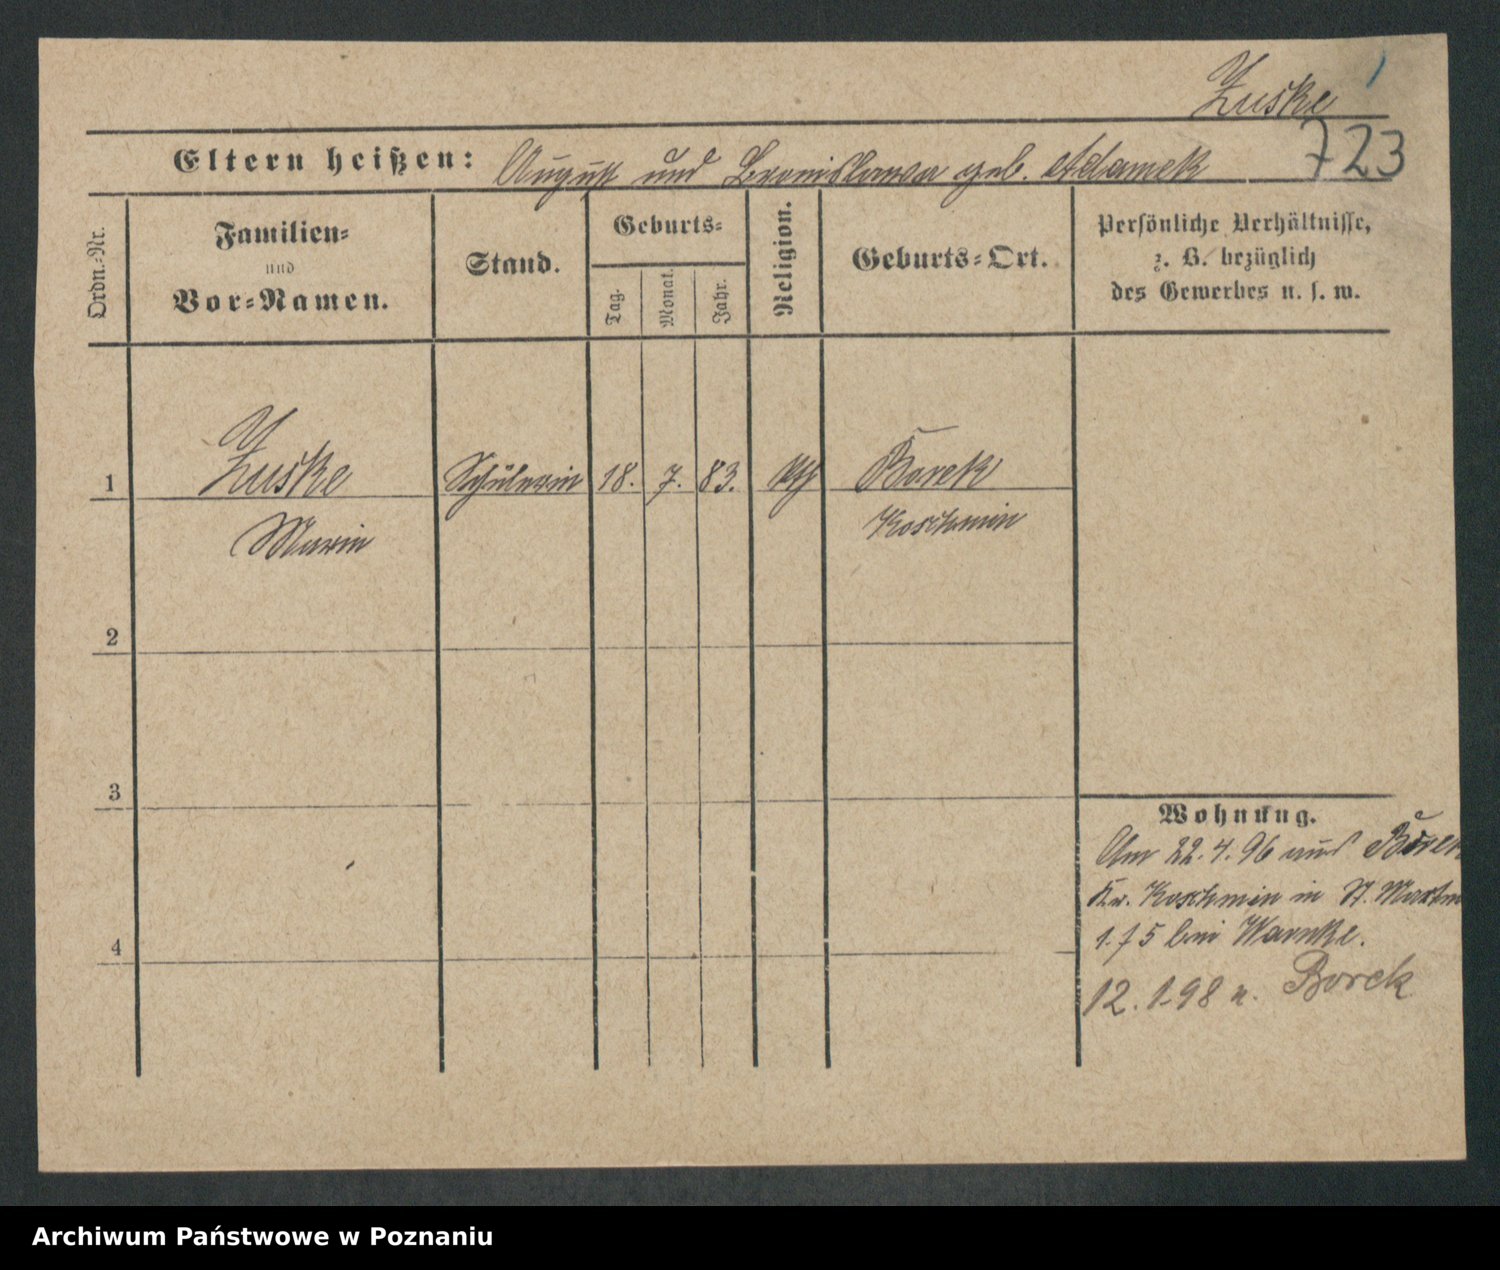 Zuske
723
Eltern heißen: August und Bronislawa geb. Adamek
Ordn.-Nr.
Familien-
und
Vor-Namen.
Stand.
Geburts-
Tag.
Monat.
Jahr.
Religion.
Geburts-Ort.
Persönliche Verhältnisse,
z. B. bezüglich
des Gewerbes u. s. w.
1 Zuske Schülerin 18. 7. 83. kth Borek
Marie Koschmin
2
3
4
Wohnung.
Am 22.4.96 aus Borek
Kr. Koschmin in St. Martin
1.f 5 bei Warnke.
12.1.98 n. Borek
Archiwum Państwowe w Poznaniu